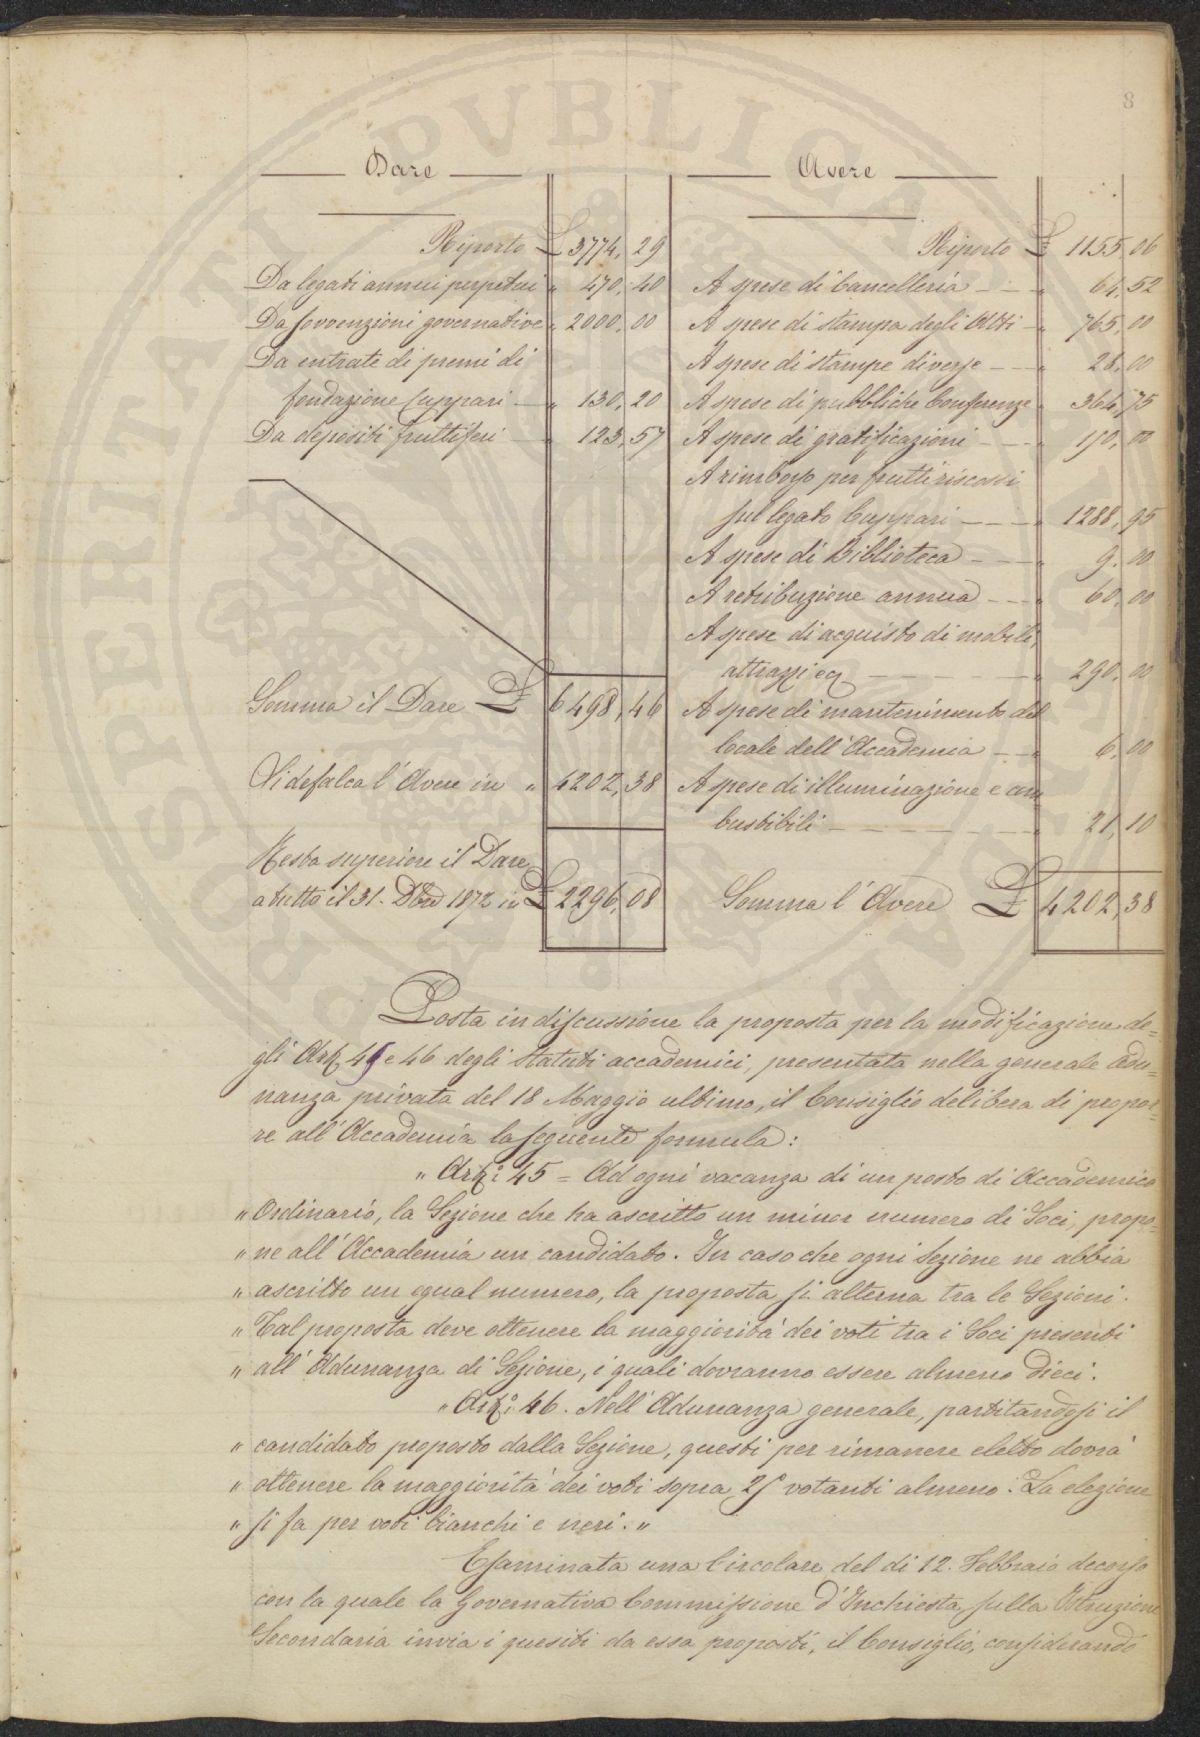 PROSPERITATI PVBLICAE AVGENDAE
8
Dare
Riporto £ 3774, 29
Da legati annui perpetui " 470, 40
Da sovvenzioni governative " 2000, 00
Da entrate di premi di
fondazione Cuppari — " 130, 20
Da depositi fruttiferi — " 123, 57
Somma il Dare £ 6498, 46
Si defalca l'Avere in " 4202, 38
Resta superiore il Dare
a tutto il 31. Dbre 1872 in £ 2296, 08
Avere
Riporto £ 1155, 06
A spese di Cancelleria — — " 64, 52
A spese di stampa degli Atti — " 765, 00
A spese di stampe diverse — — " 28, 00
A spese di pubbliche Conferenze " 364, 75
A spese di gratificazioni — — " 190, 00
A rimborso per frutti riscossi
sul legato Cuppari — — — " 1288, 95
A spese di Biblioteca — — — " 9. 00
A retribuzione annua — — " 60, 00
A spese di acquisto di mobili,
attrazzi ecc — — — — " 290, 00
A spese di mantenimento del
locale dell'Accademia — — " 6, 00
A spese di illuminazione e com
bustibili — — — — — " 21, 10
Somma l'Avere £ 4202, 38
Posta in discussione la proposta per la modificazione de=
gli Art. 45 e 46 degli Statuti accademici, presentata nella generale Adu=
nanza privata del 18 Maggio ultimo, il Consiglio delibera di propor=
re all'Accademia la seguente formula:
" Art.º 45 = Ad ogni vacanza di un posto di Accademico
" Ordinario, la Sezione che ha ascritto un minor numero di Soci, propo=
" ne all'Accademia un candidato. In caso che ogni Sezione ne abbia
" ascritto un egual numero, la proposta si alterna tra le Sezioni.
" Tal proposta deve ottenere la maggiorità dei voti tra i Soci presenti
" all'Adunanza di Sezione, i quali dovranno essere almeno dieci.
" Art.º 46. Nell'Adunanza generale, partitandosi il
" candidato proposto dalla Sezione, questi per rimanere eletto dovrà
" ottenere la maggiorità dei voti sopra 25 votanti almeno. La elezione
" si fa per voti bianchi e neri. "
Esaminata una Circolare del dì 12. Febbraio decorso
con la quale la Governativa Commissione d'Inchiesta, sulla Istruzione
Secondaria invia i quesiti da essa proposti, il Consiglio, considerando